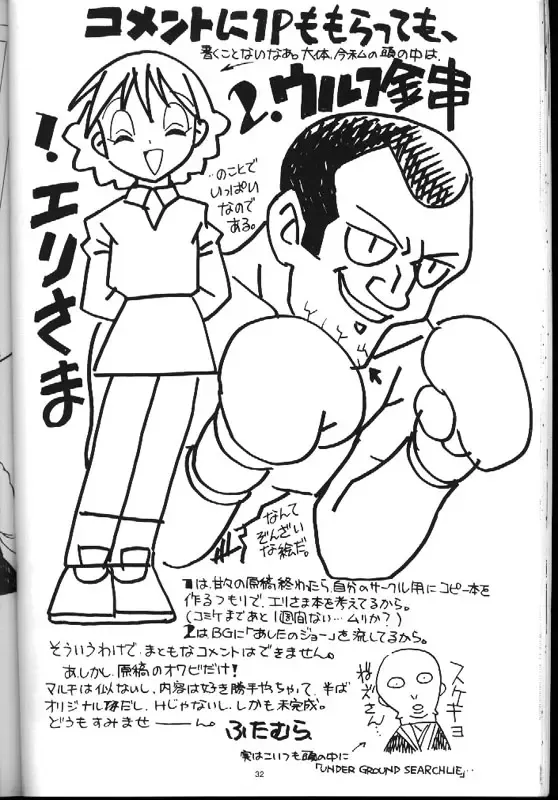 コメントに1Pももらっても、
書くことないなあ。大体、今私の頭の中は、
1.エリさま
2.ウルフ金串
…のことで
いっぱい
なので
ある。
なんて
ぞんざい
な絵だ。
1は、甘々の原稿終わたら、自分のサークル用にコピー本を
作るつもりで、エリさま本を考えてるから。
(コミケまであと1週間ない…ムリか?)
2はBGに「あしたのジョー」を流してるから。
そういうわけで、まともなコメントはできません。
あ、しかし、原稿のオワビだけ!
マルチは似ないし、内容は好き勝手やちゃって、半ば
オリジナルだし、Hじゃないし、しかも未完成。
どうもすみませーーん。
ふたむら
スケキヨ
ねえさん…
実はこいつも頭の中に
「UNDER GROUND SEARCHLIE」…
32